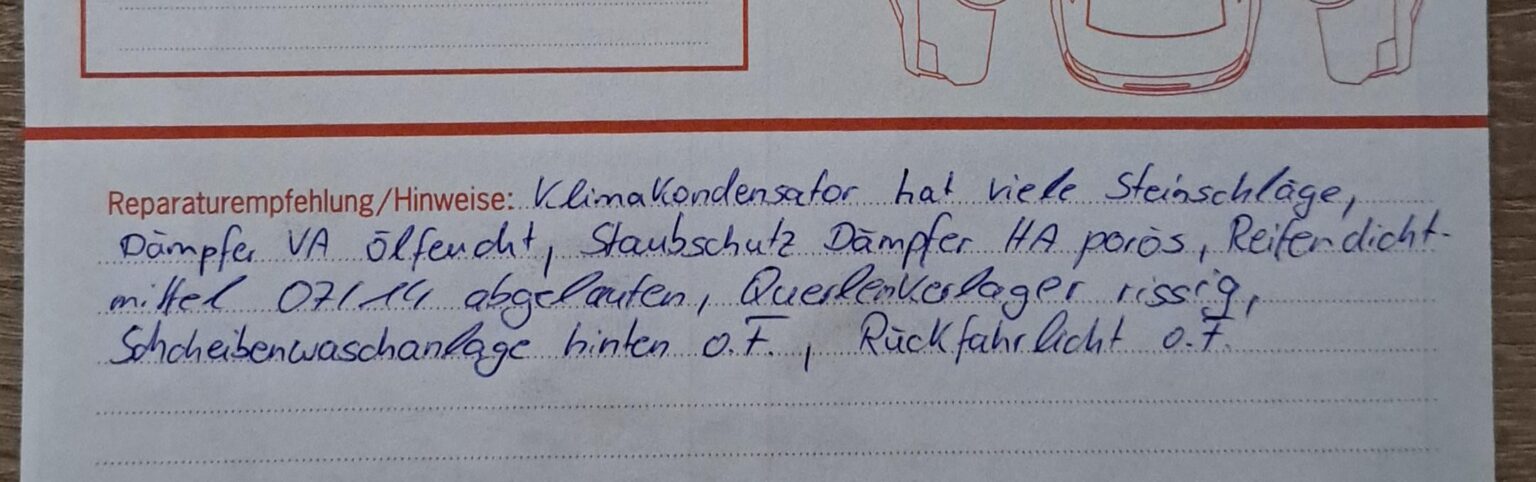 Reparaturempfehlung/Hinweise: Klimakondensator hat viele Steinschläge,
Dämpfer VA ölfeucht, Staubschutz Dämpfer HA porös, Reifendicht-
mittel 07/14 abgelaufen, Querlenkerlager rissig,
Schcheibenwaschanlage hinten o.F., Rückfahrlicht o.F.